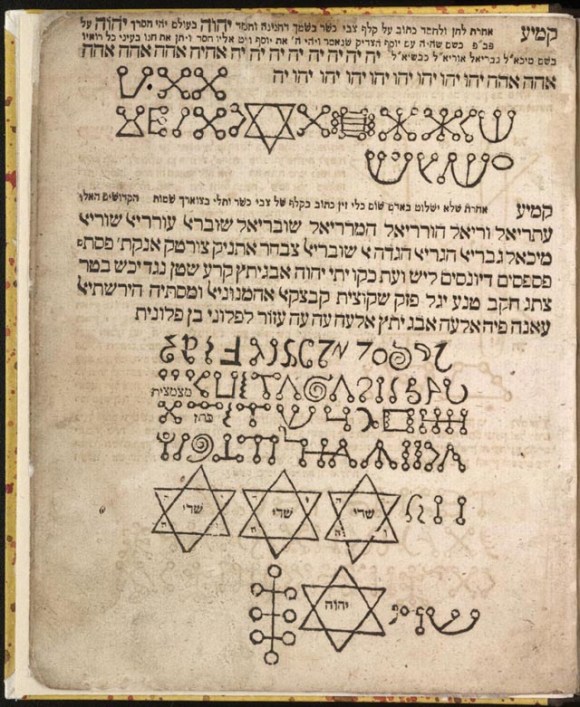 קמיע אחרת לחן ולחסד כתוב על קלף צבי כשר בשמך דחנינה וחסד יהוה בעולם יהי חסדך יהוה על
פב"פ כשם שהיה עם יוסף הצדיק שנאמר ויהי ה' את יוסף ויט אליו חסד ויתן את חנו בעיני כל רואיו
בשם מיכא"ל גבריאל אוריא"ל כבשיא"ל יה יה יה יה יה יה יה יה אהיה אהה אהה אהה
אהה אהה יהו יהו יהו יהו יהו יהו יהו יהו יה
קמיע אחרת שלא ישלוט באדם שום כלי זין כתוב בקלף של צבי כשר ותלי בצוארך שמות הקדושים האלו
עתריאל וריאל הורריאל המרריאל שובריאל שובראל עורריאל שוריאל
מיכאל גבריאל הגריאל שובריאל צבחר אתניק צורטק אנקת' פסתם
פספסים דיונסים ליש ועת כקו יתי יהוה אבגיתץ קרע שטן נגדיכש בטר
צתג חקב טנע יגל פזק שקוצית קבצקאל אהמנוניאל ומסתיה הירשתיאל
עאנה פיה אלעה אבגיתץ אלעה עה עה עזור לפלוני בן פלונית
מצמצית
שדי שדי שדי
יהוה